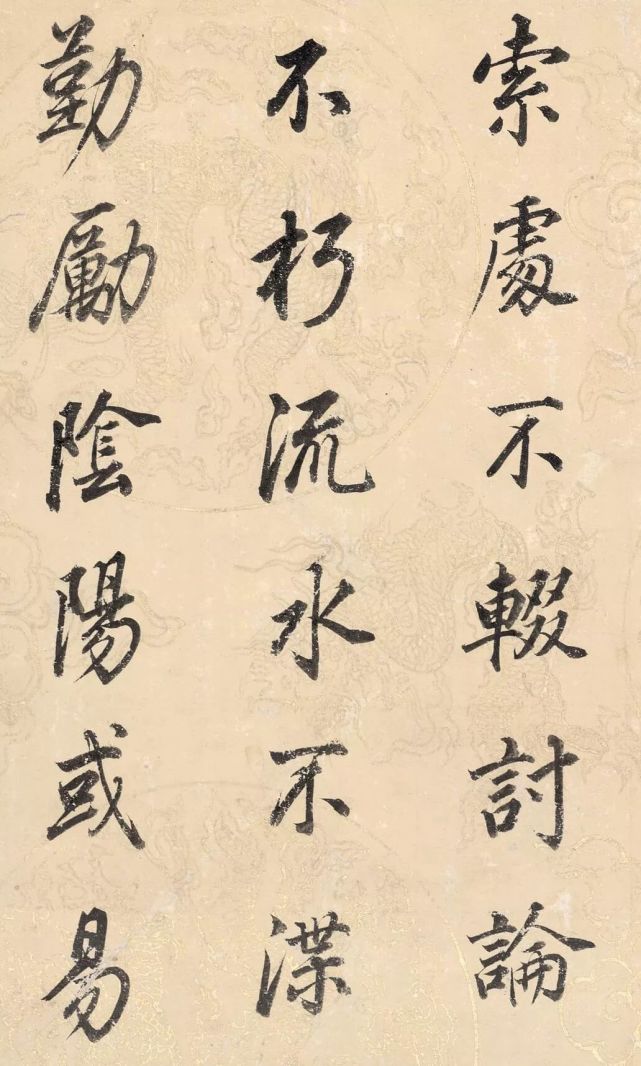 索處不輟討論
不朽流水不渫
勤勵陰陽或易